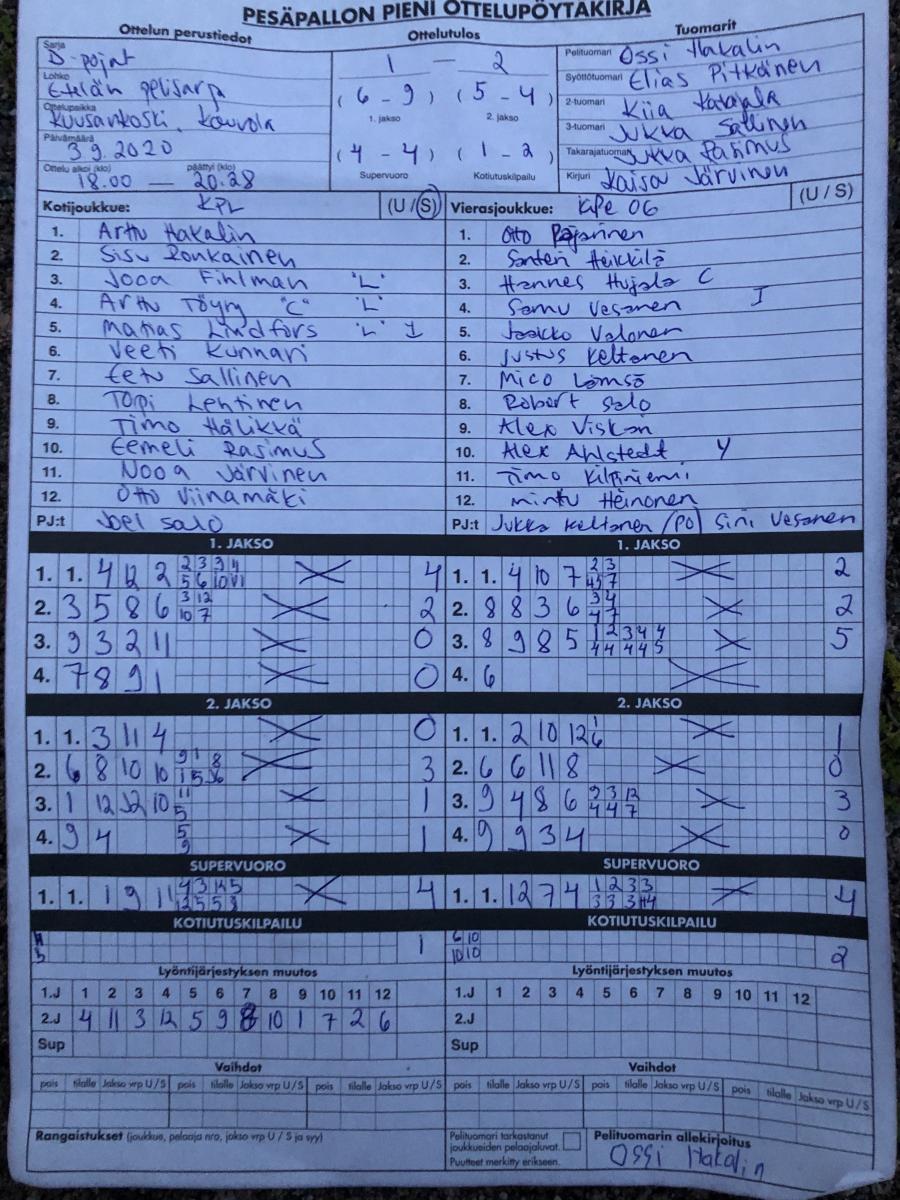 PESÄPALLON PIENI OTTELUPÖYTÄKIRJA
Ottelun perustiedot Ottelutulos Tuomarit
Sarja D-pojat
Lohko Etelän pelisarja
Ottelupaikka Kuusankoski, Kouvola
Päivämäärä 3.9.2020
Ottelu alkoi (klo) 18.00 — päättyi (klo) 20.28
1 — 2
(6 - 9) (5 - 4)
1. jakso 2. jakso
(4 - 4) (1 - 2)
Supervuoro Kotiutuskilpailu
Pelituomari Ossi Hakalin
Syöttötuomari Elias Pitkänen
2-tuomari Kiia Katajala
3-tuomari Jukka Sallinen
Takarajatuomari Jukka Rasimus
Kirjuri Kaisa Järvinen
Kotijoukkue: KPL (U / S) Vierasjoukkue: KPe 06 (U / S)
1. Arttu Hakalin
2. Sisu Ronkainen
3. Jooa Fihlman "L"
4. Arttu Töyry "C" "L"
5. Matias Lindfors "L" I
6. Veeti Kunnari
7. Eetu Sallinen
8. Topi Lehtinen
9. Timo Hälikkä
10. Eemeli Rasimus
11. Nooa Järvinen
12. Otto Viinamäki
PJ:t Joel Salo
1. Otto
2. Santeri Heikkilä
3. Hannes Hujala C
4. Samu Vesanen I
5. Jaakko Valonen
6. Justus Keltanen
7. Mico Lämsä
8. Robert Salo
9. Alex Viskari
10. Alex Ahlstedt Y
11. Timo Kilpiniemi
12. Minttu Heinonen
PJ:t Jukka Keltanen (PO) Sini Vesanen
1. JAKSO 1. JAKSO
1. 1. 4 12 2 2 3 3 4 4
5 6 10 11
2. 3 5 8 6 3 12 2
10 7
3. 9 3 2 11 0
4. 7 8 9 1 0
1. 1. 4 10 7 2 3 2
45 7
2. 8 8 3 6 3 4 2
4 7
3. 8 9 8 5 1 2 3 4 4 5
4 4 4 4 5
4. 6
2. JAKSO 2. JAKSO
1. 1. 3 11 4 0
2. 6 8 10 10 9 1 8 3
1 5
3. 1 12 12 10 11 1
5
4. 9 4 5 1
9
1. 1. 2 10 12 1 1
6
2. 6 6 11 8 0
3. 9 4 8 6 2 3 12 3
4 4 7
4. 9 9 3 4 0
SUPERVUORO SUPERVUORO
1. 1. 1 9 11 4 3 12 5 4
12 5 5 9
1. 1. 12 7 4 1 2 3 3 4
3 3 3 4
KOTIUTUSKILPAILU KOTIUTUSKILPAILU
1
6 10 2
10 10
Lyöntijärjestyksen muutos Lyöntijärjestyksen muutos
1.J 1 2 3 4 5 6 7 8 9 10 11 12 1.J 1 2 3 4 5 6 7 8 9 10 11 12
2.J 4 11 3 12 5 9 8 10 1 7 2 6 2.J
Sup Sup
Vaihdot Vaihdot
pois tilalle Jakso vrp U / S pois tilalle Jakso vrp U / S pois tilalle Jakso vrp U / S pois tilalle Jakso vrp U / S pois tilalle Jakso vrp U / S pois tilalle Jakso vrp U / S
Rangaistukset (joukkue, pelaaja nro, jakso vrp U / S ja syy)
Pelituomari tarkastanut
joukkueiden pelaajaluvat.
Puutteet merkitty erikseen.
Pelituomarin allekirjoitus
Ossi Hakalin